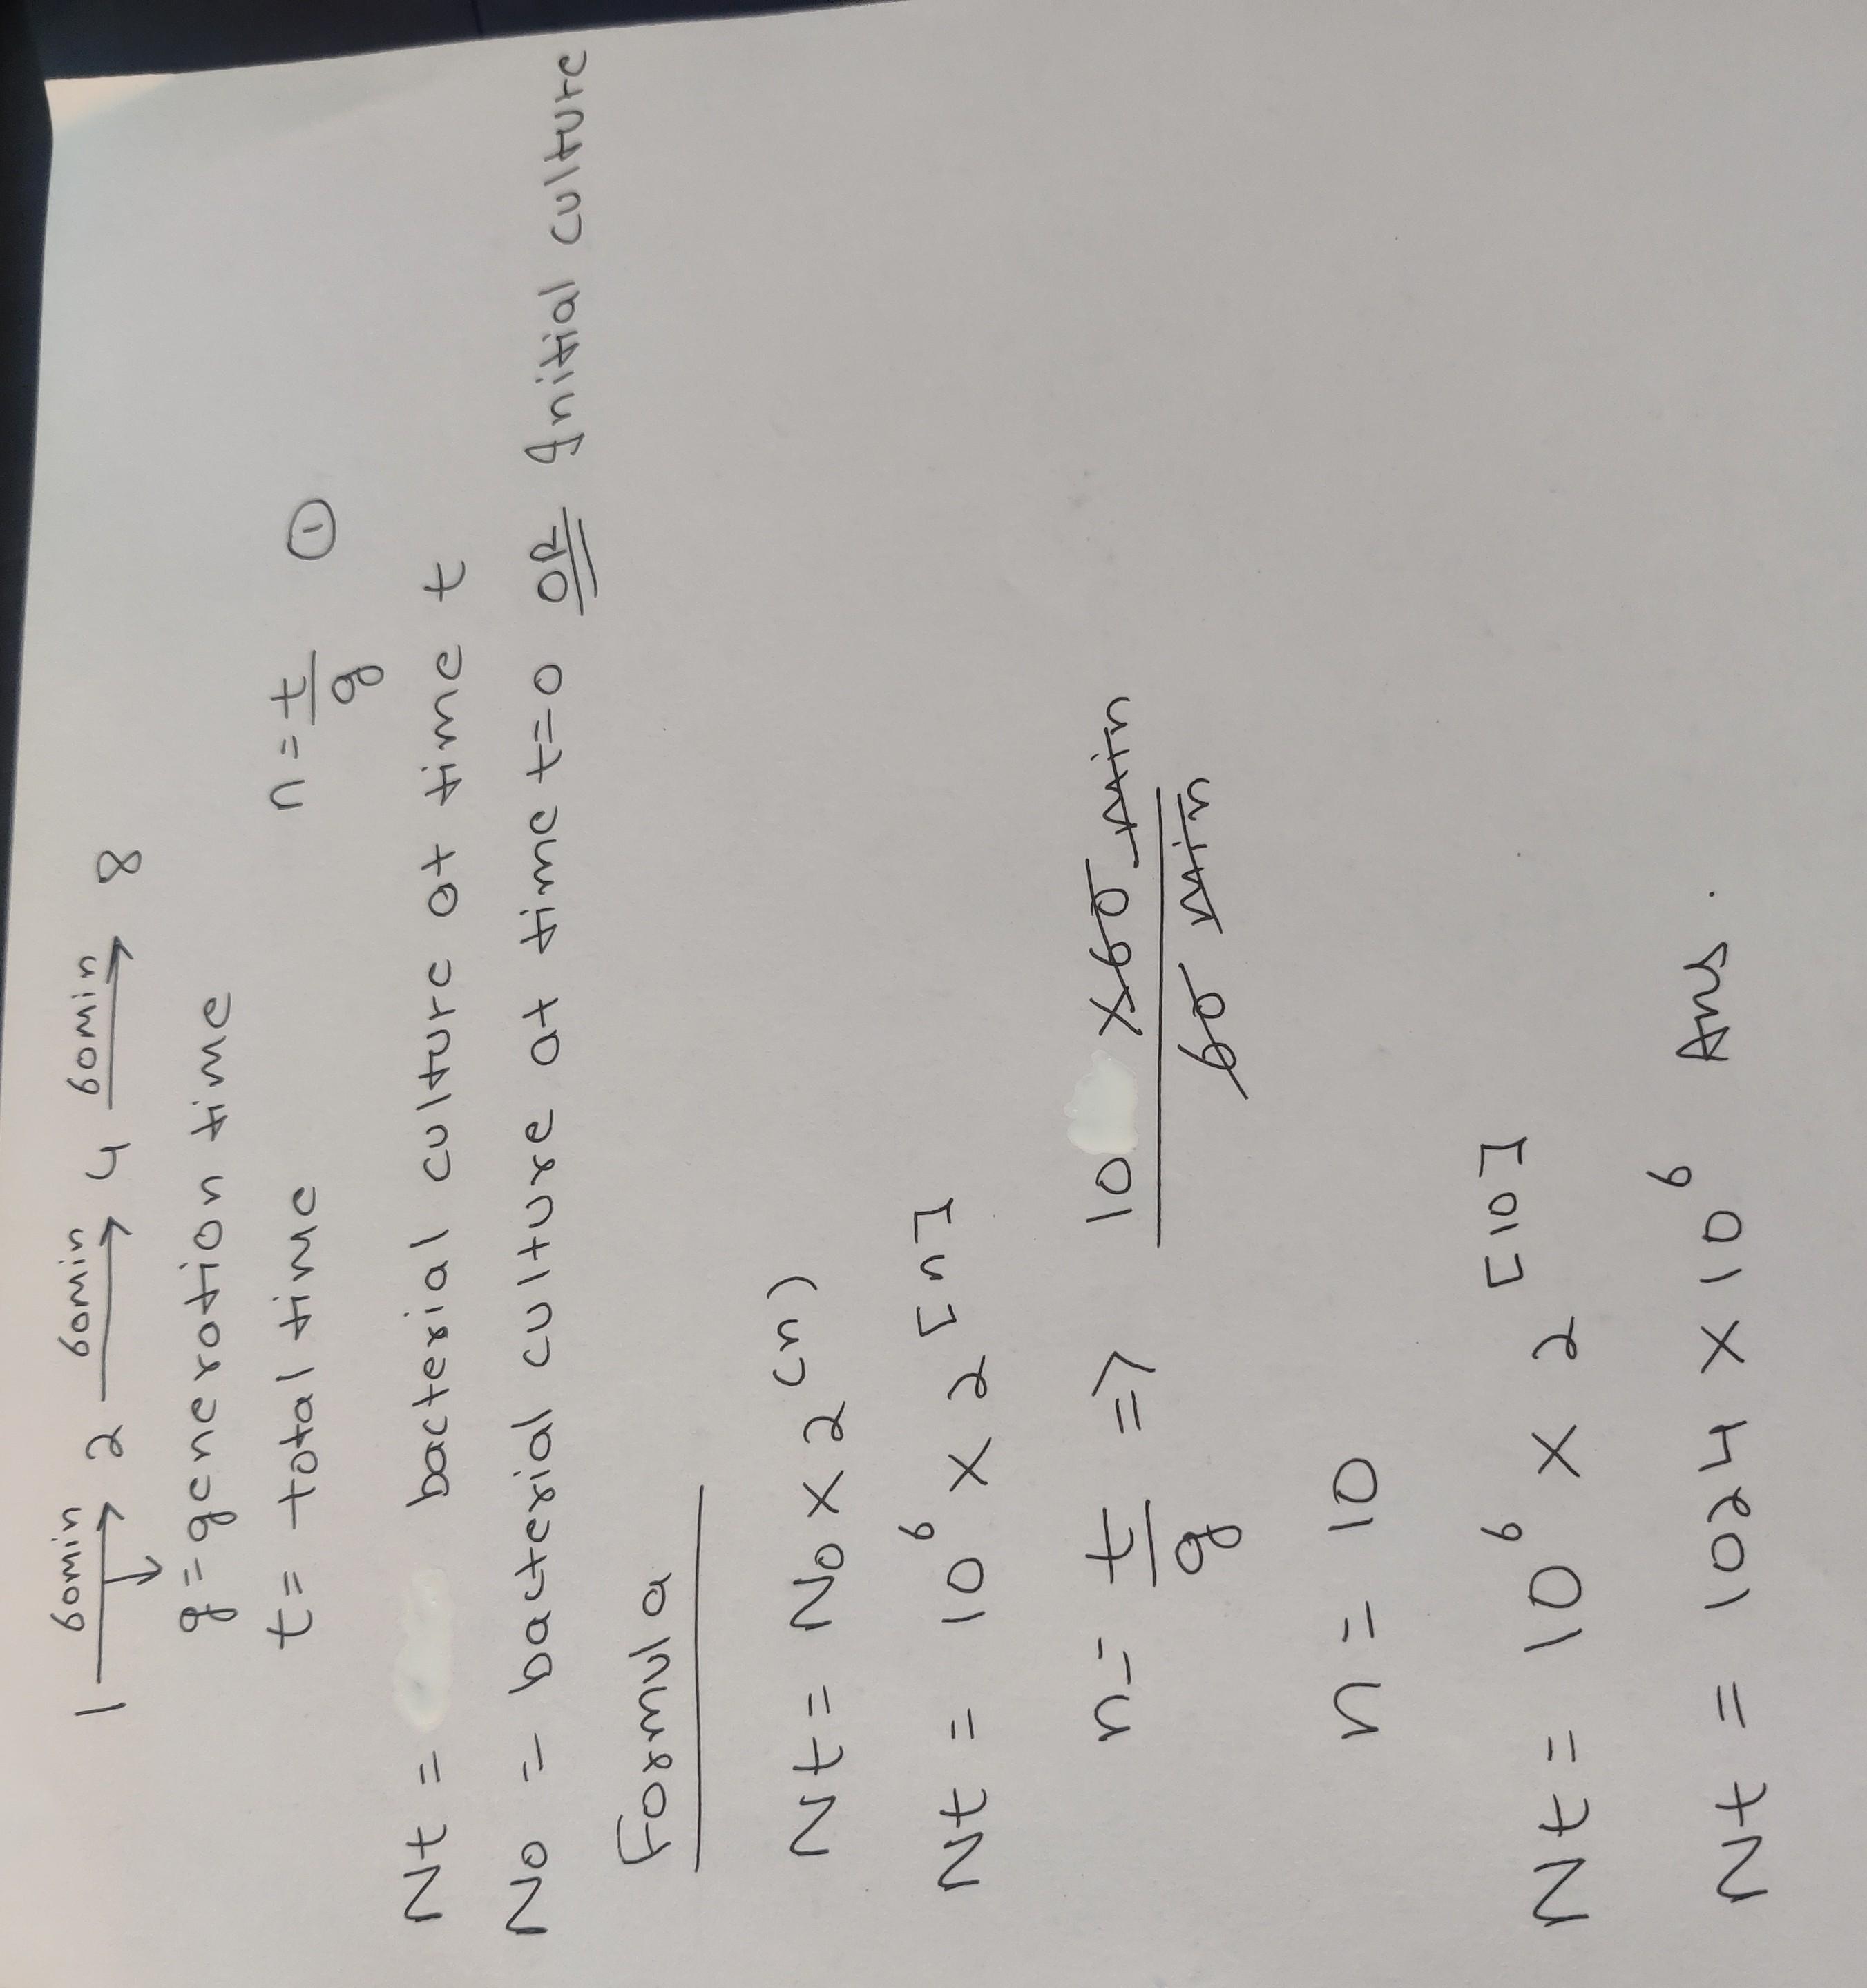 1 60min → 2 60min → 4 60min → 8
g = generation time
t = total time n = t/g ①
Nt = bacterial culture at time t
No = bacterial culture at time t=0 OR Initial culture
Formula
Nt = No × 2(n)
Nt = 10⁶ × 2[n]
n = t/g => 10 ×60 min/60 min
n = 10
Nt = 10⁶ × 2[10]
Nt = 1024 × 10⁶ Ans.